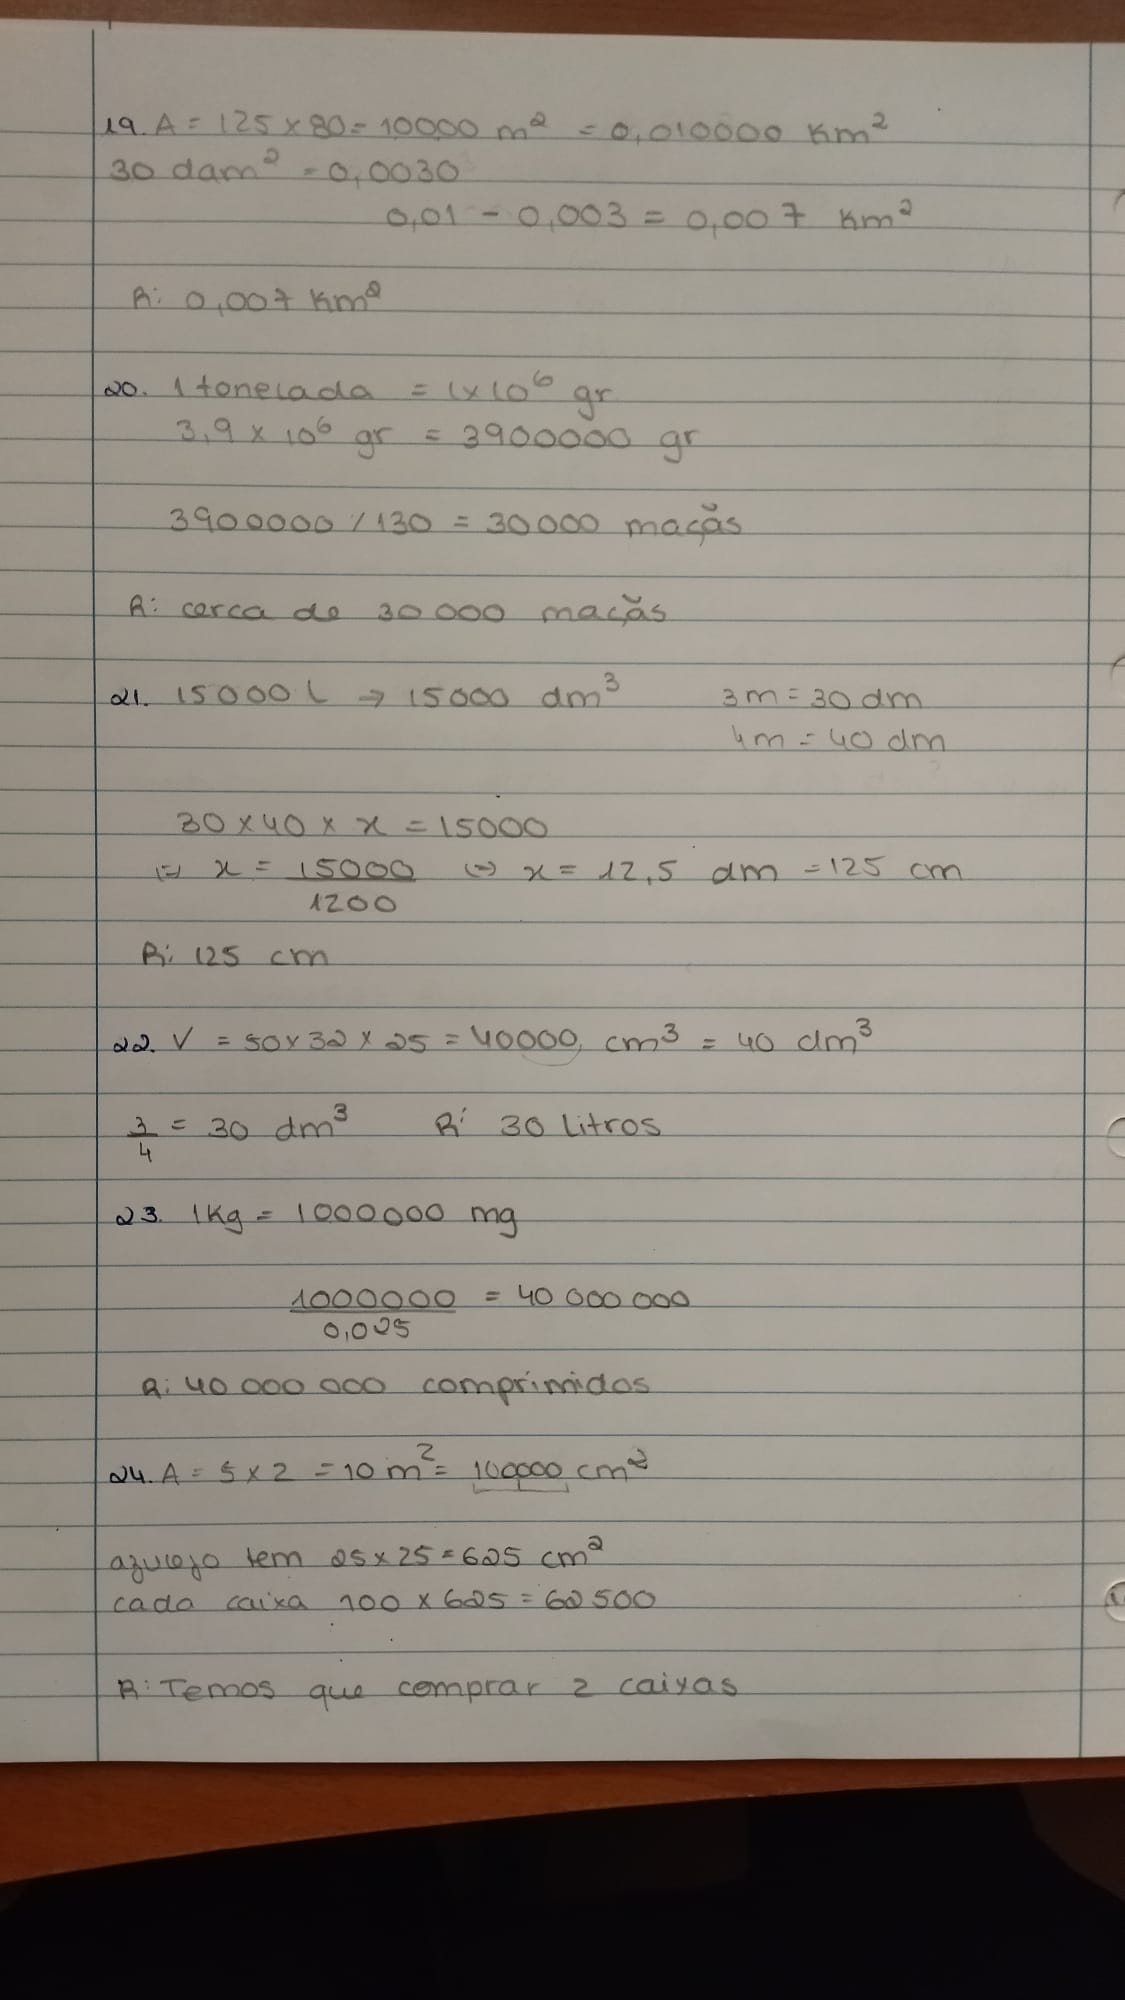 19. A = 125 × 80 = 10000 m² = 0,010000 Km²
30 dam² = 0,0030
0,01 - 0,003 = 0,007 Km²
R: 0,007 Km²
20. 1 tonelada = 1×10⁶ gr
3,9 × 10⁶ gr = 3900000 gr
3900000 / 130 = 30000 maçãs
R: cerca de 30000 maçãs
21. 15000 L → 15000 dm³ 3m = 30 dm
4m = 40 dm
30 × 40 × x = 15000
(=) x = 15000/1200 (=) x = 12,5 dm = 125 cm
R: 125 cm
22. V = 50 × 32 × 25 = 40000 cm³ = 40 dm³
3/4 = 30 dm³ R: 30 Litros
23. 1Kg = 1000000 mg
1000000/0,025 = 40 000 000
R: 40 000 000 comprimidos
24. A = 5 × 2 = 10 m² = 100000 cm²
azulejo tem 25 × 25 = 625 cm²
cada caixa 100 × 625 = 62500
R: Temos que comprar 2 caixas